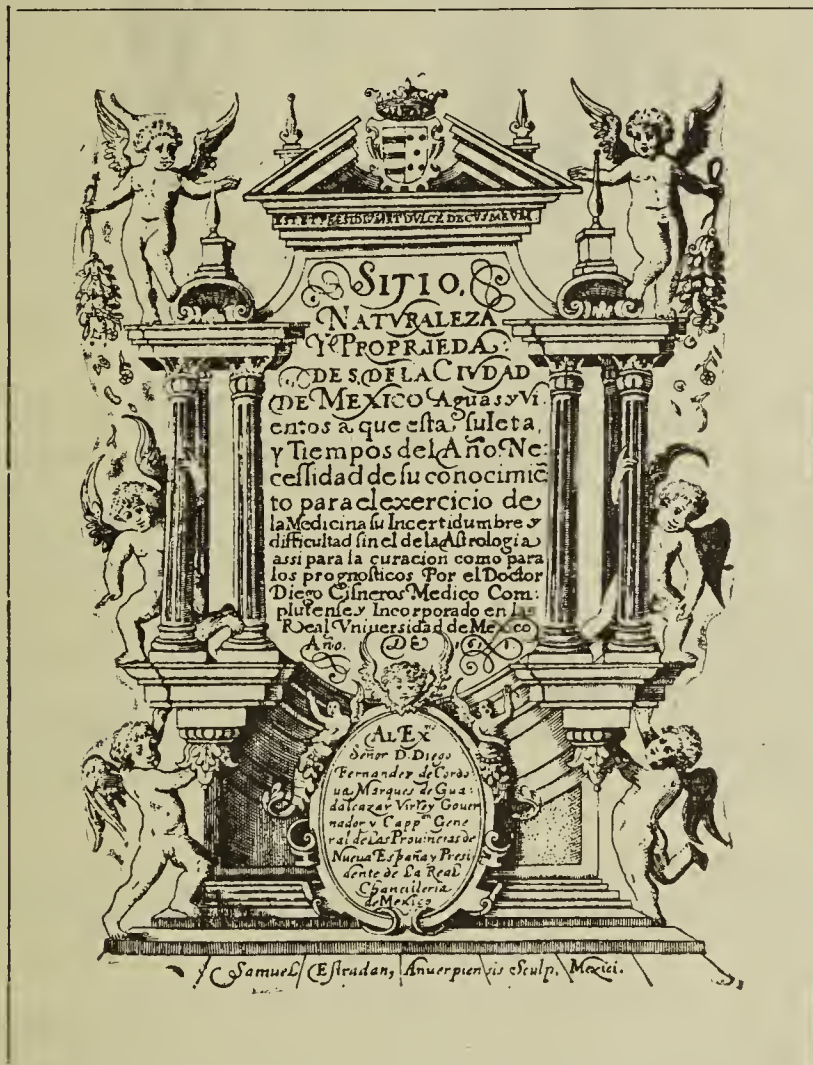 EST ET PRESIDIVM ET DVLCE DECVS MEVM
SITIO,
NATVRALEZA
Y PROPRIEDA:
DES, DE LA CIVDAD
DE MEXICO Aguas y Vi
entos a que esta suIeta,
y Tiempos del Año. Ne:
cessidad de su conocimiē
to para el exercicio de
la Medicina su Incertidumbre y
difficultad sin el de la Astrologia
assi para la curacion como para
los prognosticos Por el Doctor
Diego Cisneros Medico Com:
plutense y Incorporado en la
Real Vniuersidad de Mexico
Año. DE
AL EX
Señor D. Diego
Fernandez de Cordo
ua, Marques de Gua:
dalcazar Virrey Gouer
nador y Capp.an Gene
ral de Las Prouincias de
Nueua España y Presi
dente de La Real
Chancilleria
de Mexico
Samuel Estradan, Anuerpiensis Sculp, Mexici.